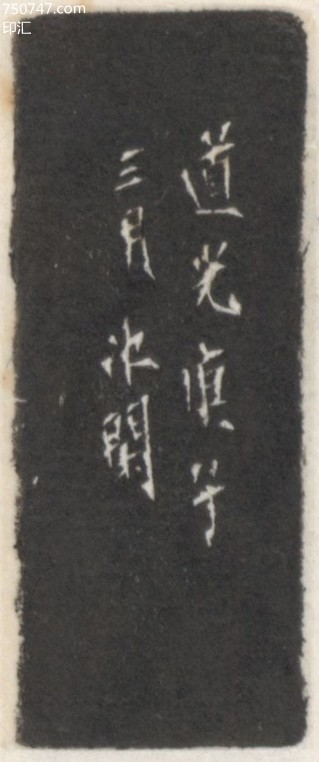 750747.com
印汇
道光
三月冰閑